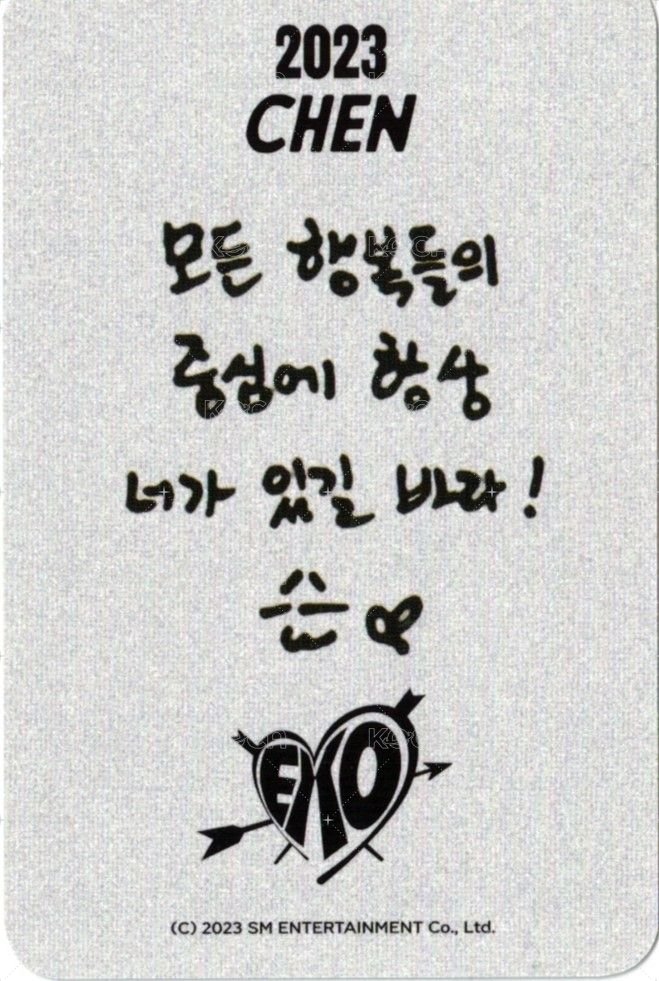 2023
CHEN
모든 행복들의
중심에 항상
너가 있길 바라!
EXO
(C) 2023 SM ENTERTAINMENT Co., Ltd.